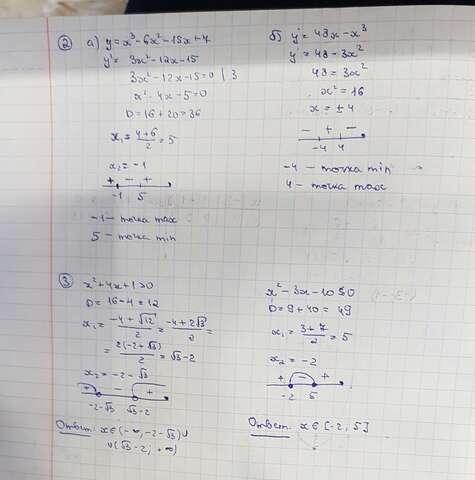 ② а) y = x³ - 6x² - 15x + 7
y' = 3x² - 12x - 15
3x² - 12x - 15 = 0 | 3
x² - 4x - 5 = 0
D = 16 + 20 = 36
x₁ = (4+6)/2 = 5
x₂ = -1
+ - +
-1 5
-1 - точка max
5 - точка min
б) y = 48x - x³
y' = 48 - 3x²
48 = 3x²
x² = 16
x = ±4
- + -
-4 4
-4 - точка min
4 - точка max
③ x² + 4x + 1 > 0
D = 16 - 4 = 12
x₁ = (-4 + √12)/2 = (-4 + 2√3)/2 =
= 2(-2 + √3)/2 = √3 - 2
x₂ = -2 - √3
+ - +
-2-√3 √3-2
Ответ: x ∈ (-∞, -2-√3) ∪
∪ (√3-2; +∞)
x² - 3x - 10 ≤ 0
D = 9 + 40 = 49
x₁ = (3+7)/2 = 5
x₂ = -2
+ - +
-2 5
Ответ: x ∈ [-2; 5]